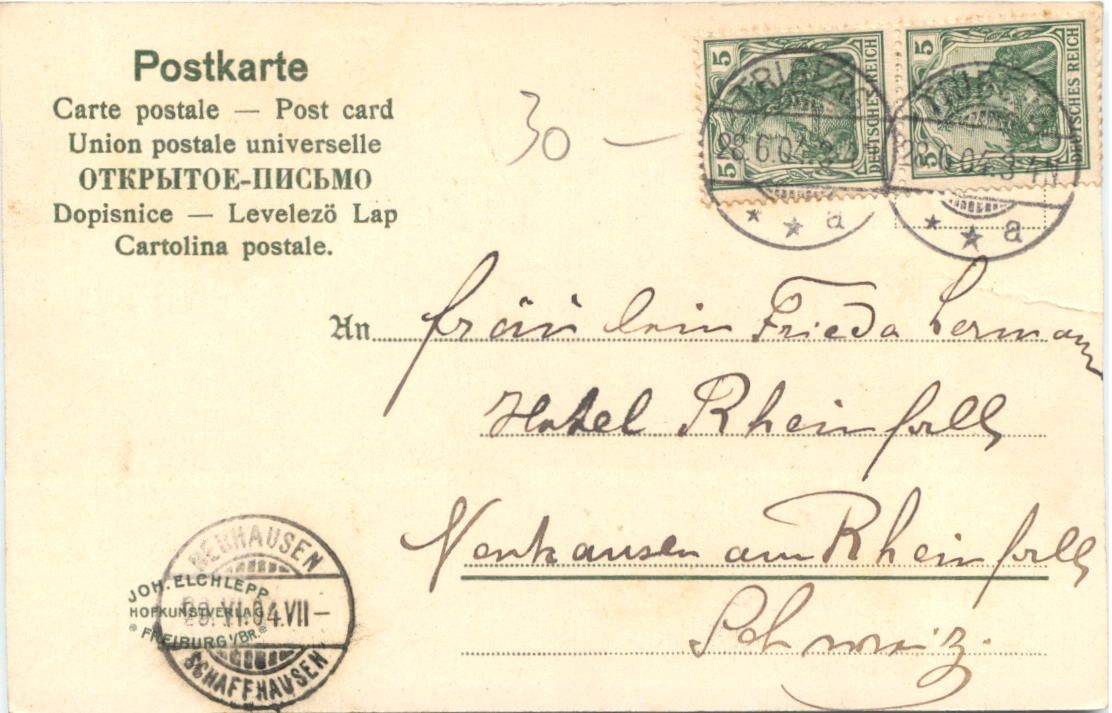 Postkarte
Carte postale — Post card
Union postale universelle
ОТКРЫТОЕ-ПИСЬМО
Dopisnice — Levelező Lap
Cartolina postale.
30 —
5 5 DEUTSCHES REICH
5 5 DEUTSCHES REICH
28.6.04
28.6.04.3-4N
a
a
An Fräulein Frieda Lermann
Hotel Rheinfall
Neuhausen am Rheinfall
Schweiz.
NEUHAUSEN
29.VI.04.VII–
SCHAFFHAUSEN
JOH. ELCHLEPP
HOFKUNSTVERLAG
* FREIBURG i/BR. *